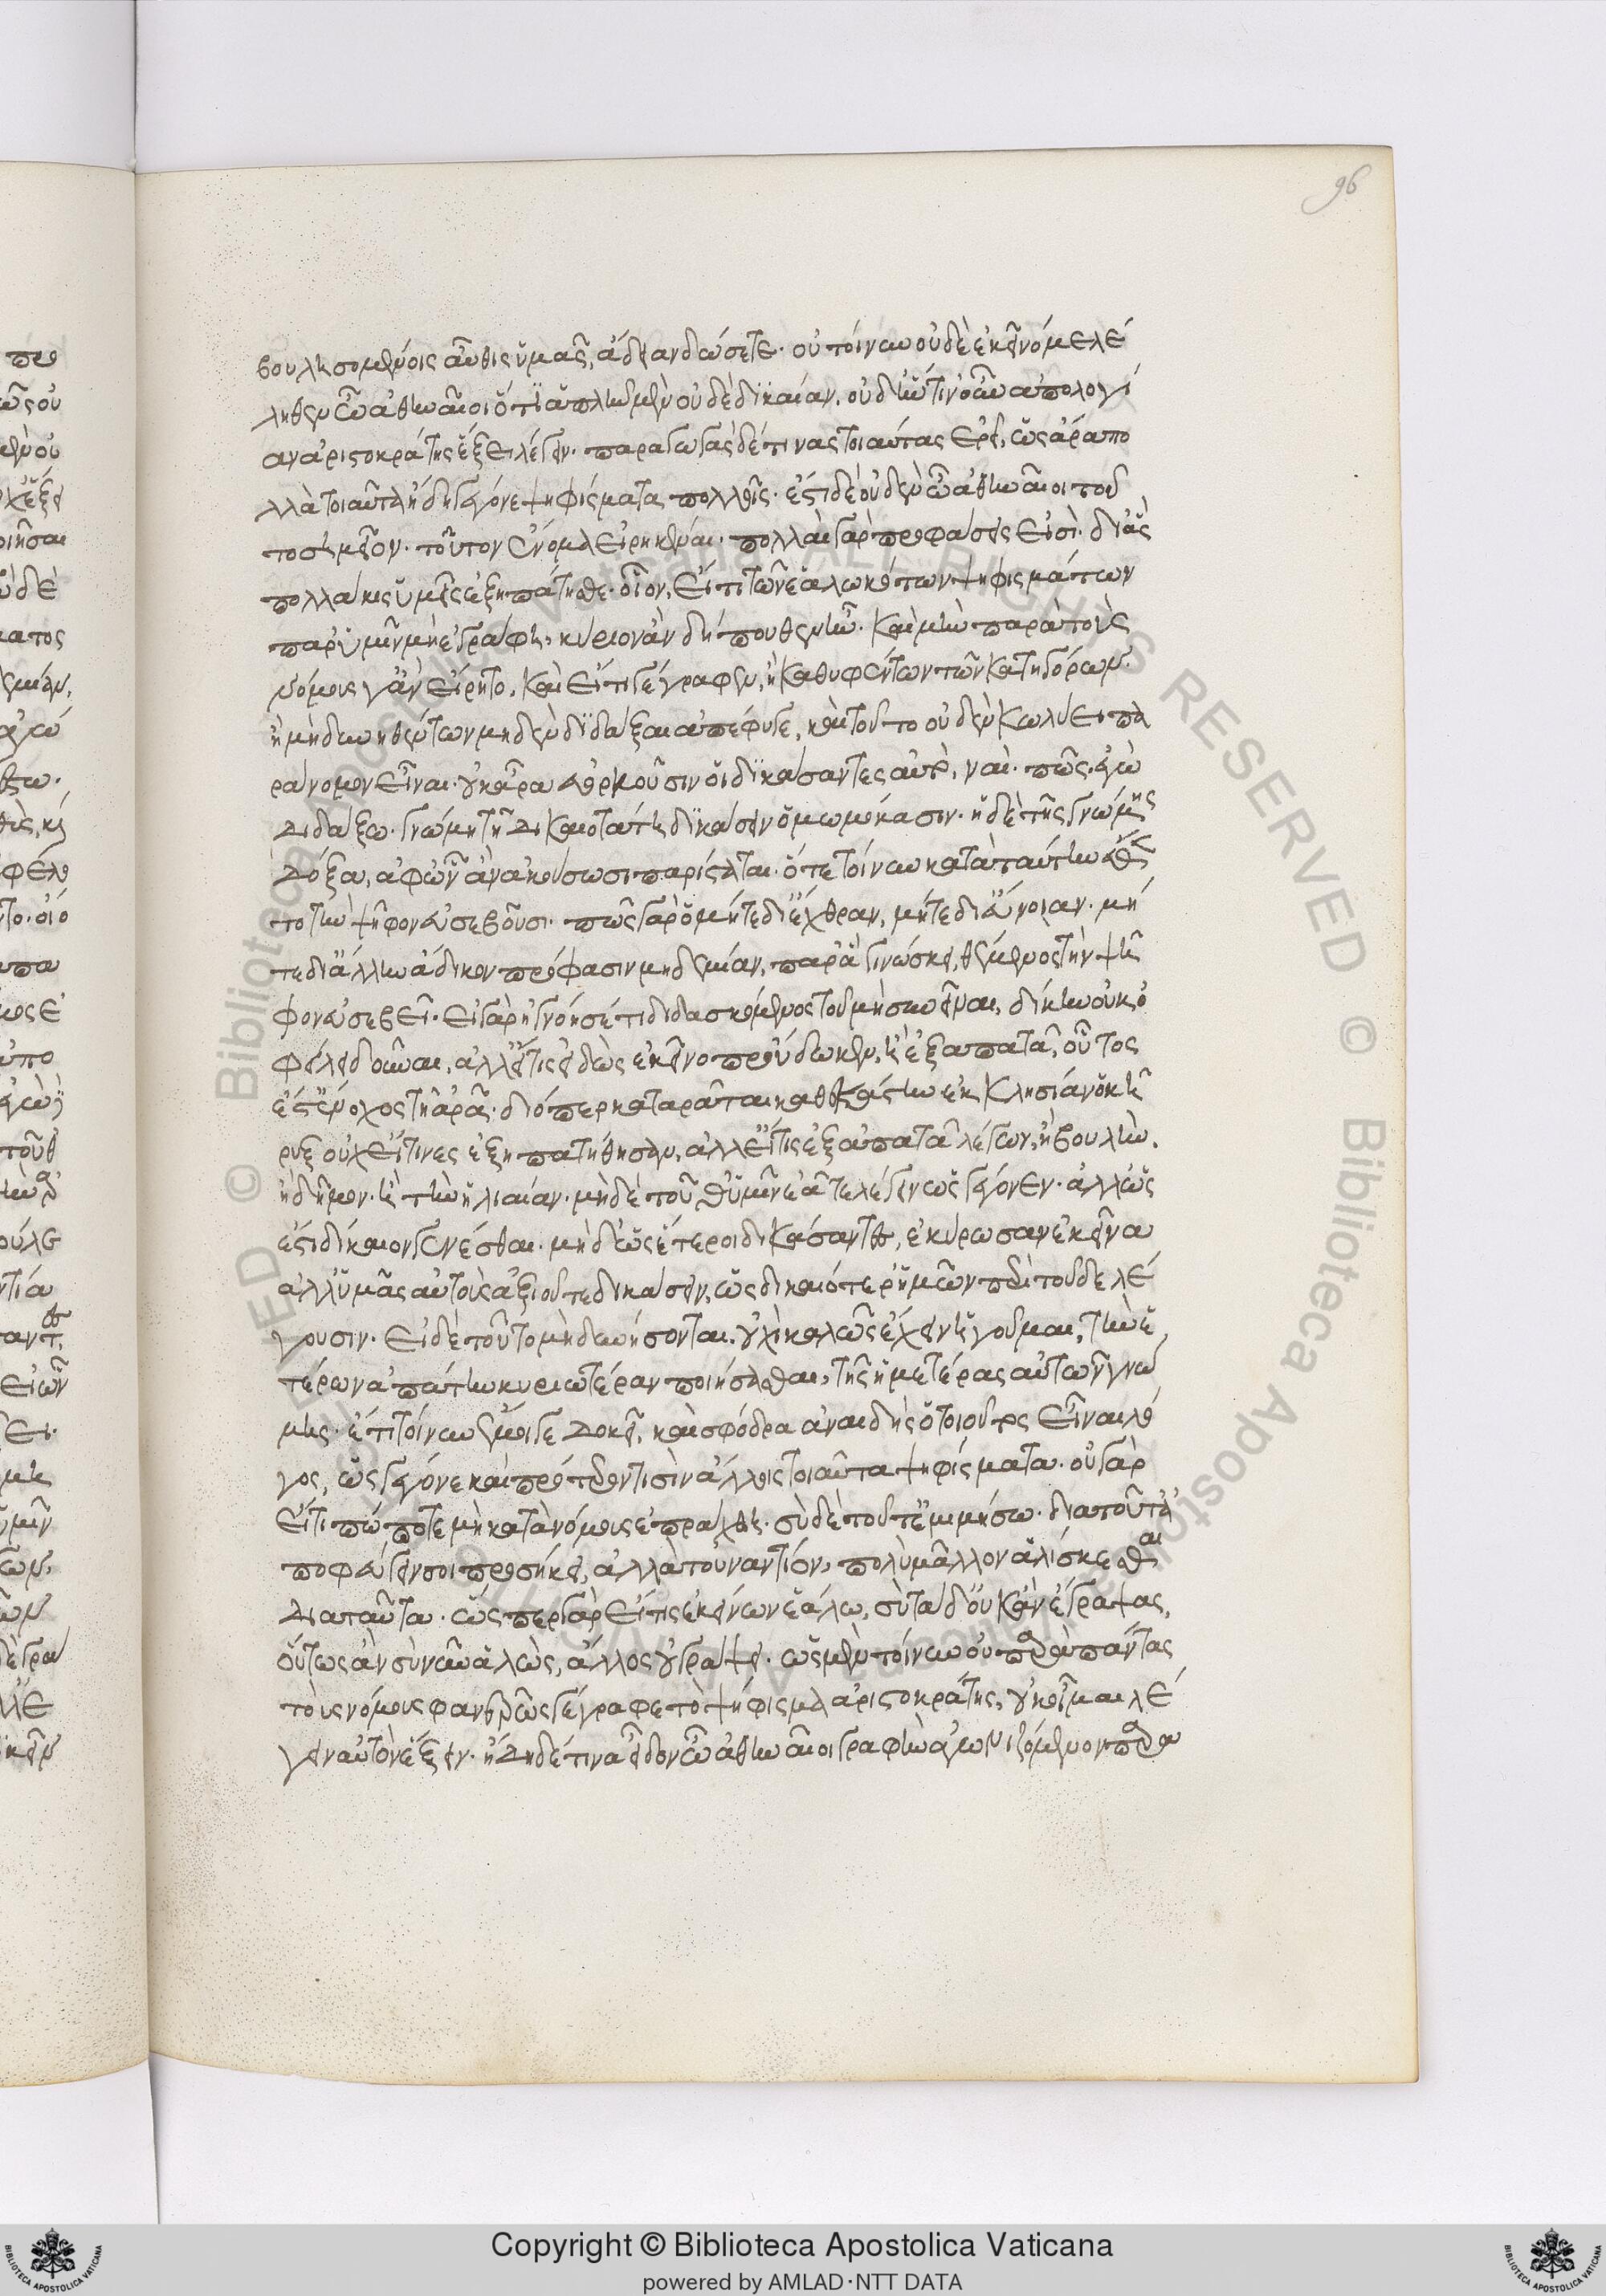 βουλησομένοις αὖθις ὑμᾶς, ἄδειαν δώσετε. οὐ τοίνυν οὐδὲ ἐκεῖνό με λέ
ληθεν ὦ ἀθηναῖοι ὅτι ἁπλῆν μὲν οὐδὲ δικαίαν, οὐδ' ἡντινοῦν ἀπολογί
αν ἀριστοκράτης ἕξει λέγειν. παραγωγὰς δέ τινας τοιαύτας ἐρεῖ, ὡς ἄρα πο
λλὰ τοιαῦτα ἤδη γέγονε ψηφίσματα πολλοῖς. ἔστι δὲ οὐδὲν ὦ ἀθηναῖοι τοῦ
το σημεῖον. τοῦτον ἔννομα εἰρηκέναι. πολλαὶ γὰρ προφάσεις εἰσὶ. δι' ἃς
πολλάκις ὑμεῖς ἐξηπάτησθε. οἷον, εἴ τι τῶν ἑαλωκότων ψηφισμάτων
παρ' ὑμῖν μὴ ἐγράφη, κύριον ἂν δήπουθεν ἦν. καὶ μὴν παρὰ τοὺς
νόμους γ' ἂν εἴρητο. καὶ εἴ τι γέγραφεν, ἢ καθυφέντων τῶν κατηγόρων.
ἢ μὴ δυνηθέντων μηδὲν διδάξαι ἀπέφυγε, καὶ τοῦτο οὐδὲν κωλύει πα
ράνομον εἶναι. οὐκ ἄρα εὐορκοῦσιν οἱ δικάσαντες αὐτό, ναί. πῶς, ἐγὼ
διδάξω. γνώμῃ τῇ δικαιοτάτῃ δικάσειν ὀμωμόκασιν. ἡ δὲ τῆς γνώμης
δόξα, ἀφ' ὧν ἂν ἀκούσωσι παρίσταται. ὅτε τοίνυν κατὰ ταύτην ἔθεν
το τὴν ψῆφον εὐσεβοῦσι. πᾶς γὰρ ὁ μήτε δι' ἔχθραν, μήτε δι' εὔνοιαν. μή
τε δι' ἄλλην ἄδικον πρόφασιν μηδεμίαν, παρ' ἃ γινώσκει, θέμενος τὴν ψῆ
φον εὐσεβεῖ. εἰ γὰρ ἠγνόησέ τι διδασκόμενος τοῦ μὴ συνεῖναι, δίκην οὐκ ὀ
φείλει δοῦναι, ἀλλ' εἴ τις εἰδὼς ἐκεῖνο προύδωκεν, ἢ ἐξαπατᾷ, οὗτος
ἔστ' ἔνοχος τῇ ἀρᾷ. διόπερ καταρᾶται καθ' ἑκάστην ἐκκλησίαν ὁ κῆ
ρυξ οὐχ εἴ τινες ἐξηπατήθησαν, ἀλλ' εἴ τις ἐξαπατᾷ λέγων, ἢ βουλὴν.
ἢ δῆμον. ἢ τὴν ἡλιαίαν. μὴ δὲ τοῦθ' ὑμῖν ἐᾶτε λέγειν ὡς γέγονεν. ἀλλ' ὡς
ἔστι δίκαιον γενέσθαι. μηδ' ὡς ἕτεροι δικάσαντες, ἐκύρωσαν ἐκεῖνα
ἀλλ' ὑμᾶς αὐτοὺς ἀξιοῦτε δικάσειν, ὡς δικαιότερ' ἡμῶν περὶ τοῦδε λέ
γουσιν. εἰ δὲ τοῦτο μὴ δυνήσονται. οὐχὶ καλῶς ἔχειν ἡγοῦμαι, τὴν ἑ
τέρων ἀπάτην κυριωτέραν ποιήσασθαι, τῆς ἡμετέρας αὐτῶν γνώ
μης. ἔτι τοίνυν ἔμοιγε δοκεῖ, καὶ σφόδρα ἀναιδὴς ὁ τοιοῦτος εἶναι λό
γος, ὡς γέγονε καὶ πρότερον τισὶν ἄλλοις τοιαῦτα ψηφίσματα. οὐ γὰρ
εἴ τι πώποτε μὴ κατὰ νόμους ἐπράχθη. σὺ δὲ τοῦτ' ἐμιμήσω. διὰ τοῦτ' ἀ
ποφεύγειν σοι προσήκει, ἀλλὰ τουναντίον, πολὺ μᾶλλον ἁλίσκεσθαι
διὰ ταῦτα. ὥσπερ γὰρ εἴ τις ἐκείνων ἑάλω, σὺ τάδ' οὐκ ἂν ἔγραψας,
οὕτως ἂν σὺ νῦν ἁλῶς, ἄλλος οὐ γράψει. ὡς μὲν τοίνυν οὐ παρὰ πάντας
τοὺς νόμους φανερῶς γέγραφε τὸ ψήφισμα ἀριστοκράτης, οὐκ οἶμαι λέ
γειν αὐτὸν ἕξειν. ἤδη δέ τινα εἶδον ὦ ἀθηναῖοι γραφὴν ἀγωνιζόμενον παρα
96
Copyright © Biblioteca Apostolica Vaticana
powered by AMLAD·NTT DATA